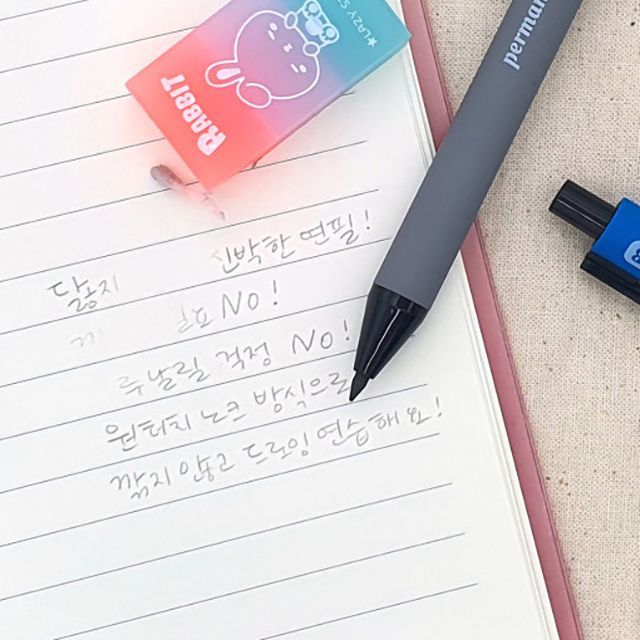 ★LAZY S
RABBIT
perman
닳지 신박한 연필!
No!
루날릴 걱정 No!
원터치 노크 방식으로
깎지 않고 드로잉 연습해요!